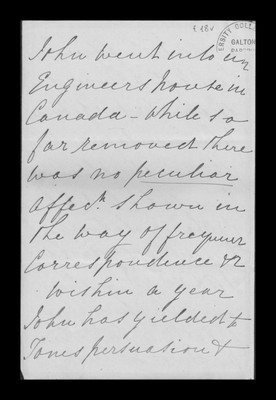 E 18v
ERSITY COLL
GALTON
John went into an
Engineers house in
Canada - while so
far removed there
was no peculiar
affecn. shown in
the way of frequent
Correspondence &c
within a year
John has yielded to
Toms persuation &